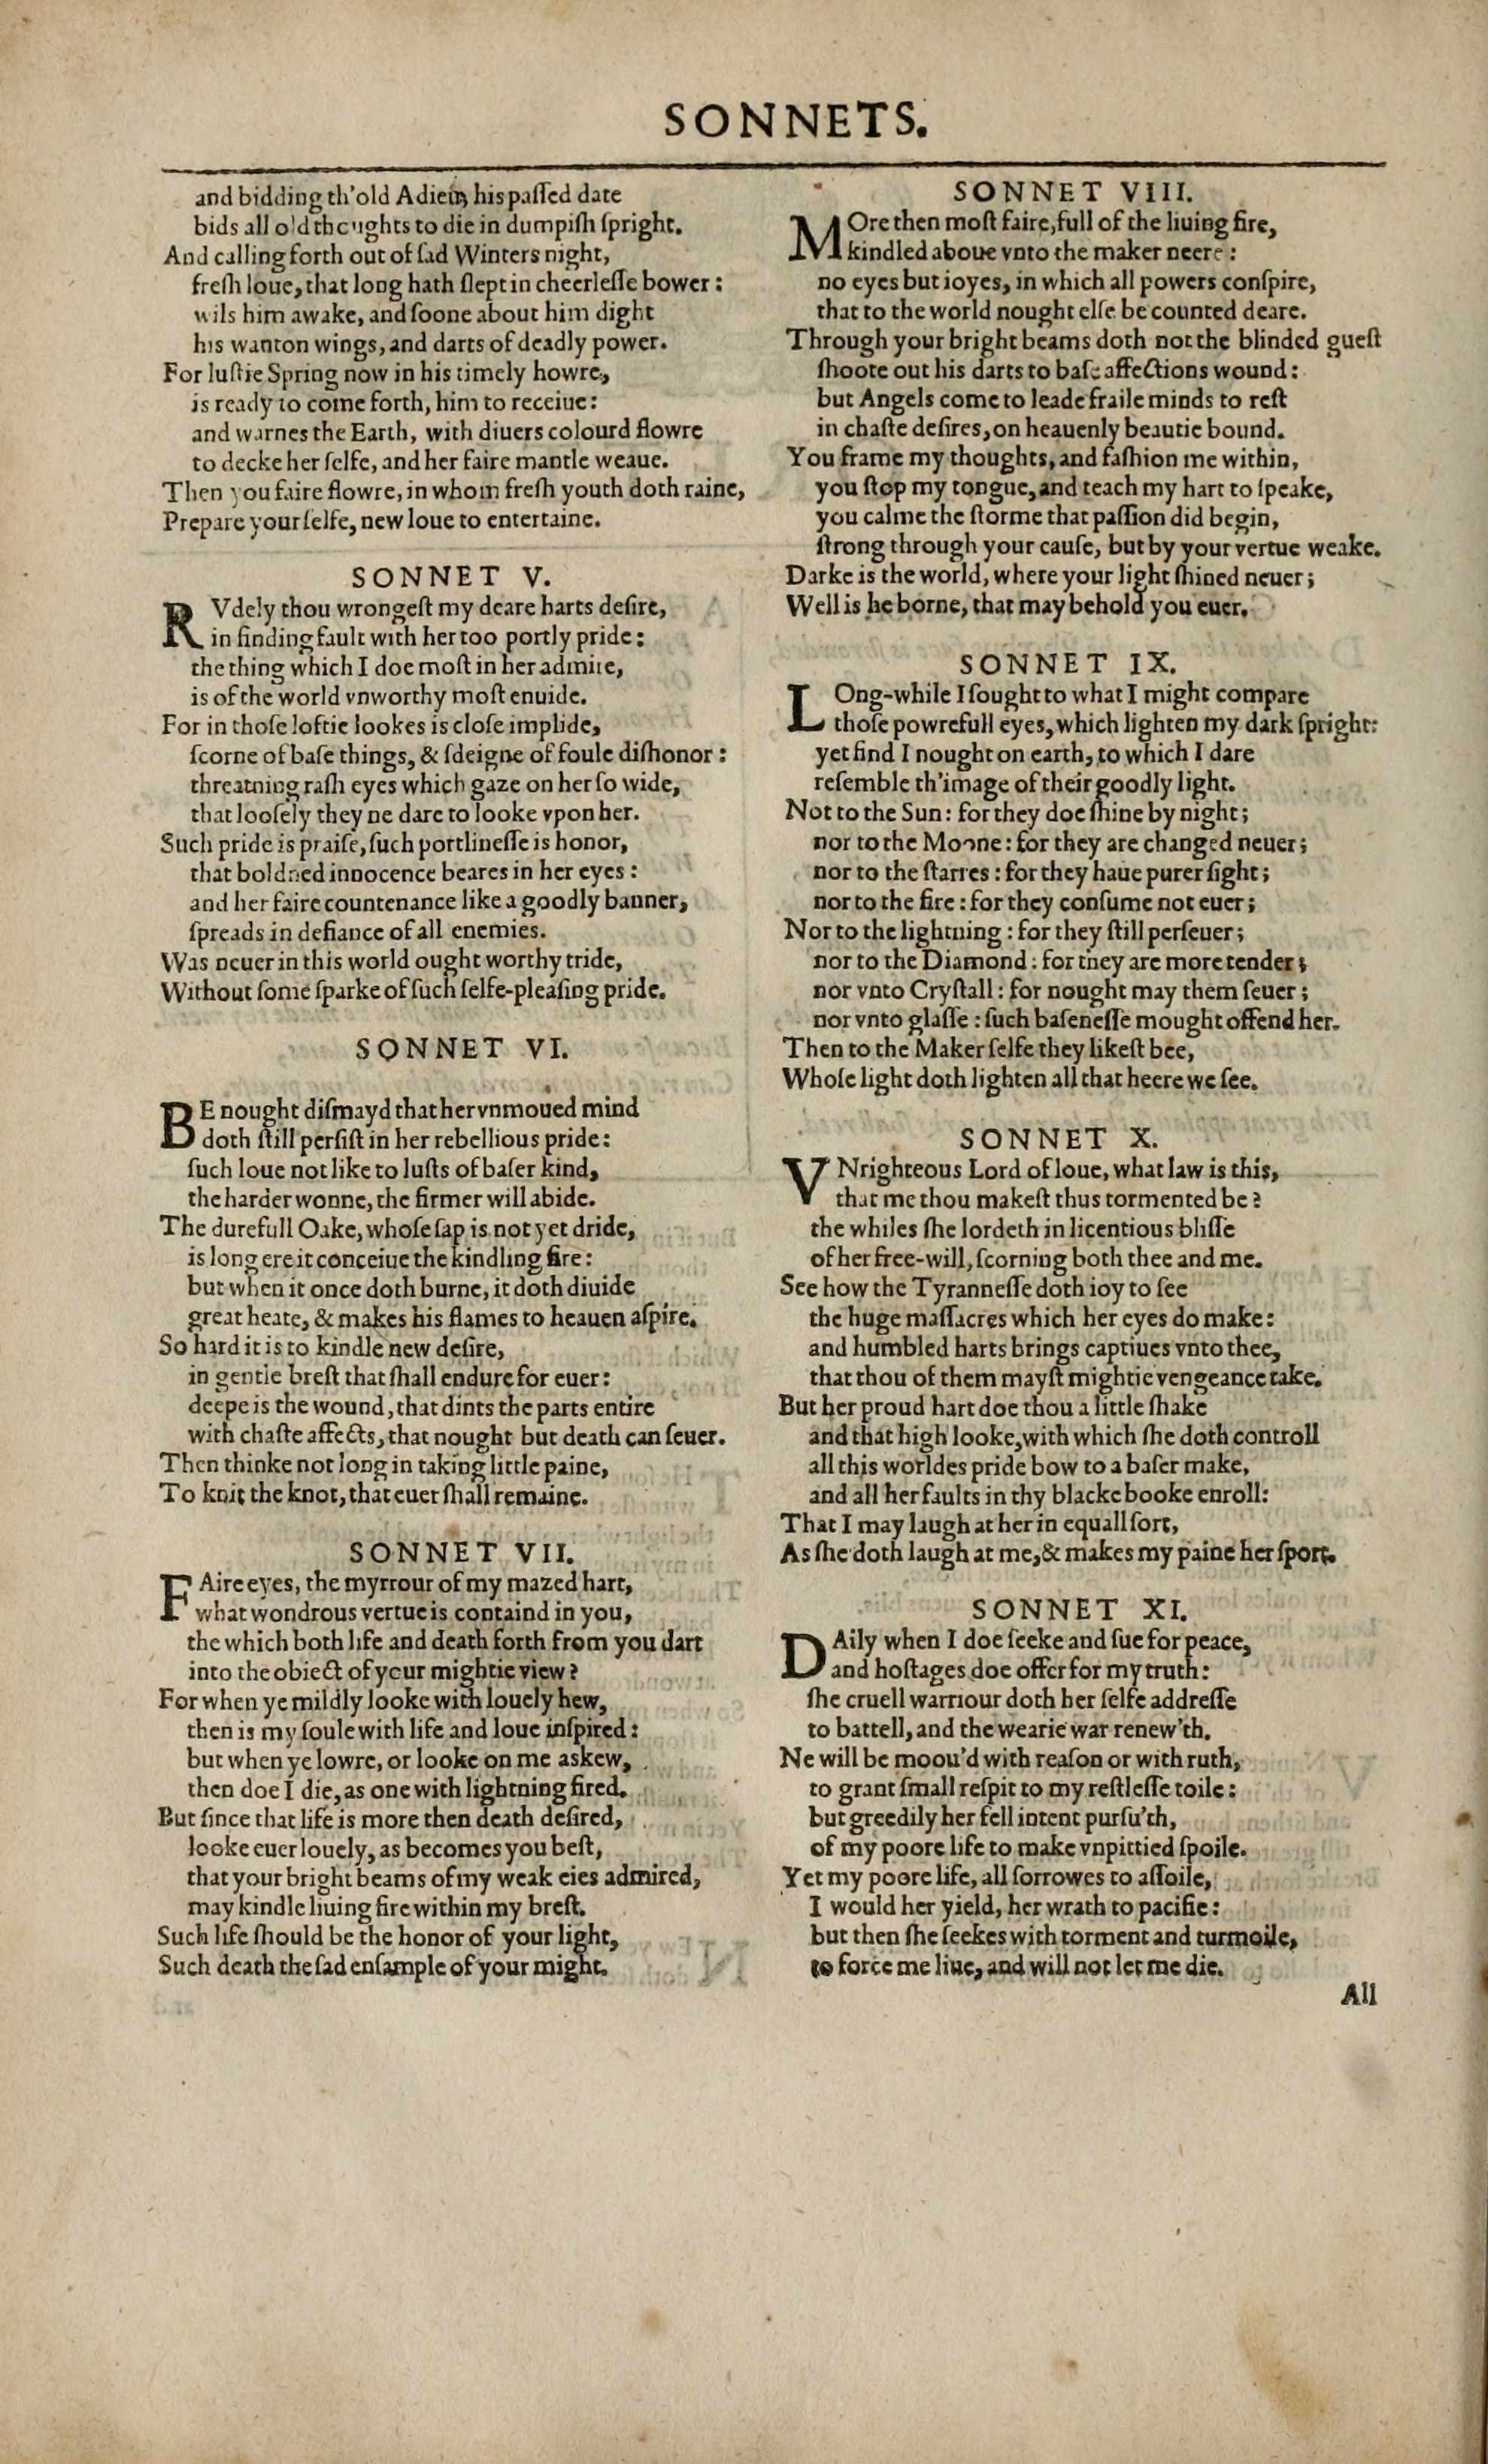 SONNETS.
and bidding th'old Adieu, his paſſed date
bids all old thoughts to die in dumpiſh ſpright.
And calling forth out of ſad Winters night,
freſh loue, that long hath ſlept in cheerleſſe bower:
wils him awake, and ſoone about him dight
his wanton wings, and darts of deadly power.
For luſtie Spring now in his timely howre,
is ready to come forth, him to receiue:
and warnes the Earth, with diuers colourd flowre
to decke her ſelfe, and her faire mantle weaue.
Then you faire flowre, in whom freſh youth doth raine,
Prepare your ſelfe, new loue to entertaine.
SONNET V.
RVdely thou wrongeſt my deare harts deſire,
in finding fault with her too portly pride:
the thing which I doe moſt in her admire,
is of the world vnworthy moſt enuide.
For in thoſe loftie lookes is cloſe implide,
ſcorne of baſe things, & ſdeigne of foule diſhonor:
threatning raſh eyes which gaze on her ſo wide,
that looſely they ne dare to looke vpon her.
Such pride is praiſe, ſuch portlineſſe is honor,
that boldned innocence beares in her eyes:
and her faire countenance like a goodly banner,
ſpreads in defiance of all enemies.
Was neuer in this world ought worthy tride,
Without ſome ſparke of ſuch ſelfe-pleaſing pride.
SONNET VI.
BE nought diſmayd that her vnmoued mind
doth ſtill perſiſt in her rebellious pride:
ſuch loue not like to luſts of baſer kind,
the harder wonne, the firmer will abide.
The durefull Oake, whoſe ſap is not yet dride,
is long ere it conceiue the kindling fire:
but when it once doth burne, it doth diuide
great heate, & makes his flames to heauen aſpire.
So hard it is to kindle new deſire,
in gentle breſt that ſhall endure for euer:
deepe is the wound, that dints the parts entire
with chaſte affects, that nought but death can ſeuer.
Then thinke not long in taking little paine,
To knit the knot, that euer ſhall remaine.
SONNET VII.
FAire eyes, the myrrour of my mazed hart,
what wondrous vertue is containd in you,
the which both life and death forth from you dart
into the obiect of your mightie view?
For when ye mildly looke with louely hew,
then is my ſoule with life and loue inſpired:
but when ye lowre, or looke on me askew,
then doe I die, as one with lightning fired.
But ſince that life is more then death deſired,
looke euer louely, as becomes you beſt,
that your bright beams of my weak eies admired,
may kindle liuing fire within my breſt.
Such life ſhould be the honor of your light,
Such death the ſad enſample of your might.
SONNET VIII.
MOre then moſt faire, full of the liuing fire,
kindled aboue vnto the maker neere:
no eyes but ioyes, in which all powers conſpire,
that to the world nought elſe be counted deare.
Through your bright beams doth not the blinded gueſt
ſhoote out his darts to baſe affections wound:
but Angels come to leade fraile minds to reſt
in chaſte deſires, on heauenly beautie bound.
You frame my thoughts, and faſhion me within,
you ſtop my tongue, and teach my hart to ſpeake,
you calme the ſtorme that paſſion did begin,
ſtrong through your cauſe, but by your vertue weake.
Darke is the world, where your light ſhined neuer;
Well is he borne, that may behold you euer.
SONNET IX.
LOng-while I ſought to what I might compare
thoſe powrefull eyes, which lighten my dark ſpright:
yet find I nought on earth, to which I dare
reſemble th'image of their goodly light.
Not to the Sun: for they doe ſhine by night;
nor to the Moone: for they are changed neuer;
nor to the ſtarres: for they haue purer ſight;
nor to the fire: for they conſume not euer;
Nor to the lightning: for they ſtill perſeuer;
nor to the Diamond: for they are more tender;
nor vnto Cryſtall: for nought may them ſeuer;
nor vnto glaſſe: ſuch baſeneſſe mought offend her.
Then to the Maker ſelfe they likeſt bee,
Whoſe light doth lighten all that heere we ſee.
SONNET X.
VNrighteous Lord of loue, what law is this,
that me thou makeſt thus tormented be?
the whiles ſhe lordeth in licentious bliſſe
of her free-will, ſcorning both thee and me.
See how the Tyranneſſe doth ioy to ſee
the huge maſſacres which her eyes do make:
and humbled harts brings captiues vnto thee,
that thou of them mayſt mightie vengeance take.
But her proud hart doe thou a little ſhake
and that high looke, with which ſhe doth controll
all this worldes pride bow to a baſer make,
and all her faults in thy blacke booke enroll:
That I may laugh at her in equall ſort,
As ſhe doth laugh at me, & makes my paine her ſport.
SONNET XI.
DAily when I doe ſeeke and ſue for peace,
and hoſtages doe offer for my truth:
ſhe cruell warriour doth her ſelfe addreſſe
to battell, and the wearie war renew'th.
Ne will be moou'd with reaſon or with ruth,
to grant ſmall reſpit to my reſtleſſe toile:
but greedily her fell intent purſu'th,
of my poore life to make vnpittied ſpoile.
Yet my poore life, all ſorrowes to aſſoile,
I would her yield, her wrath to pacifie:
but then ſhe ſeekes with torment and turmoile,
to force me liue, and will not let me die.
All